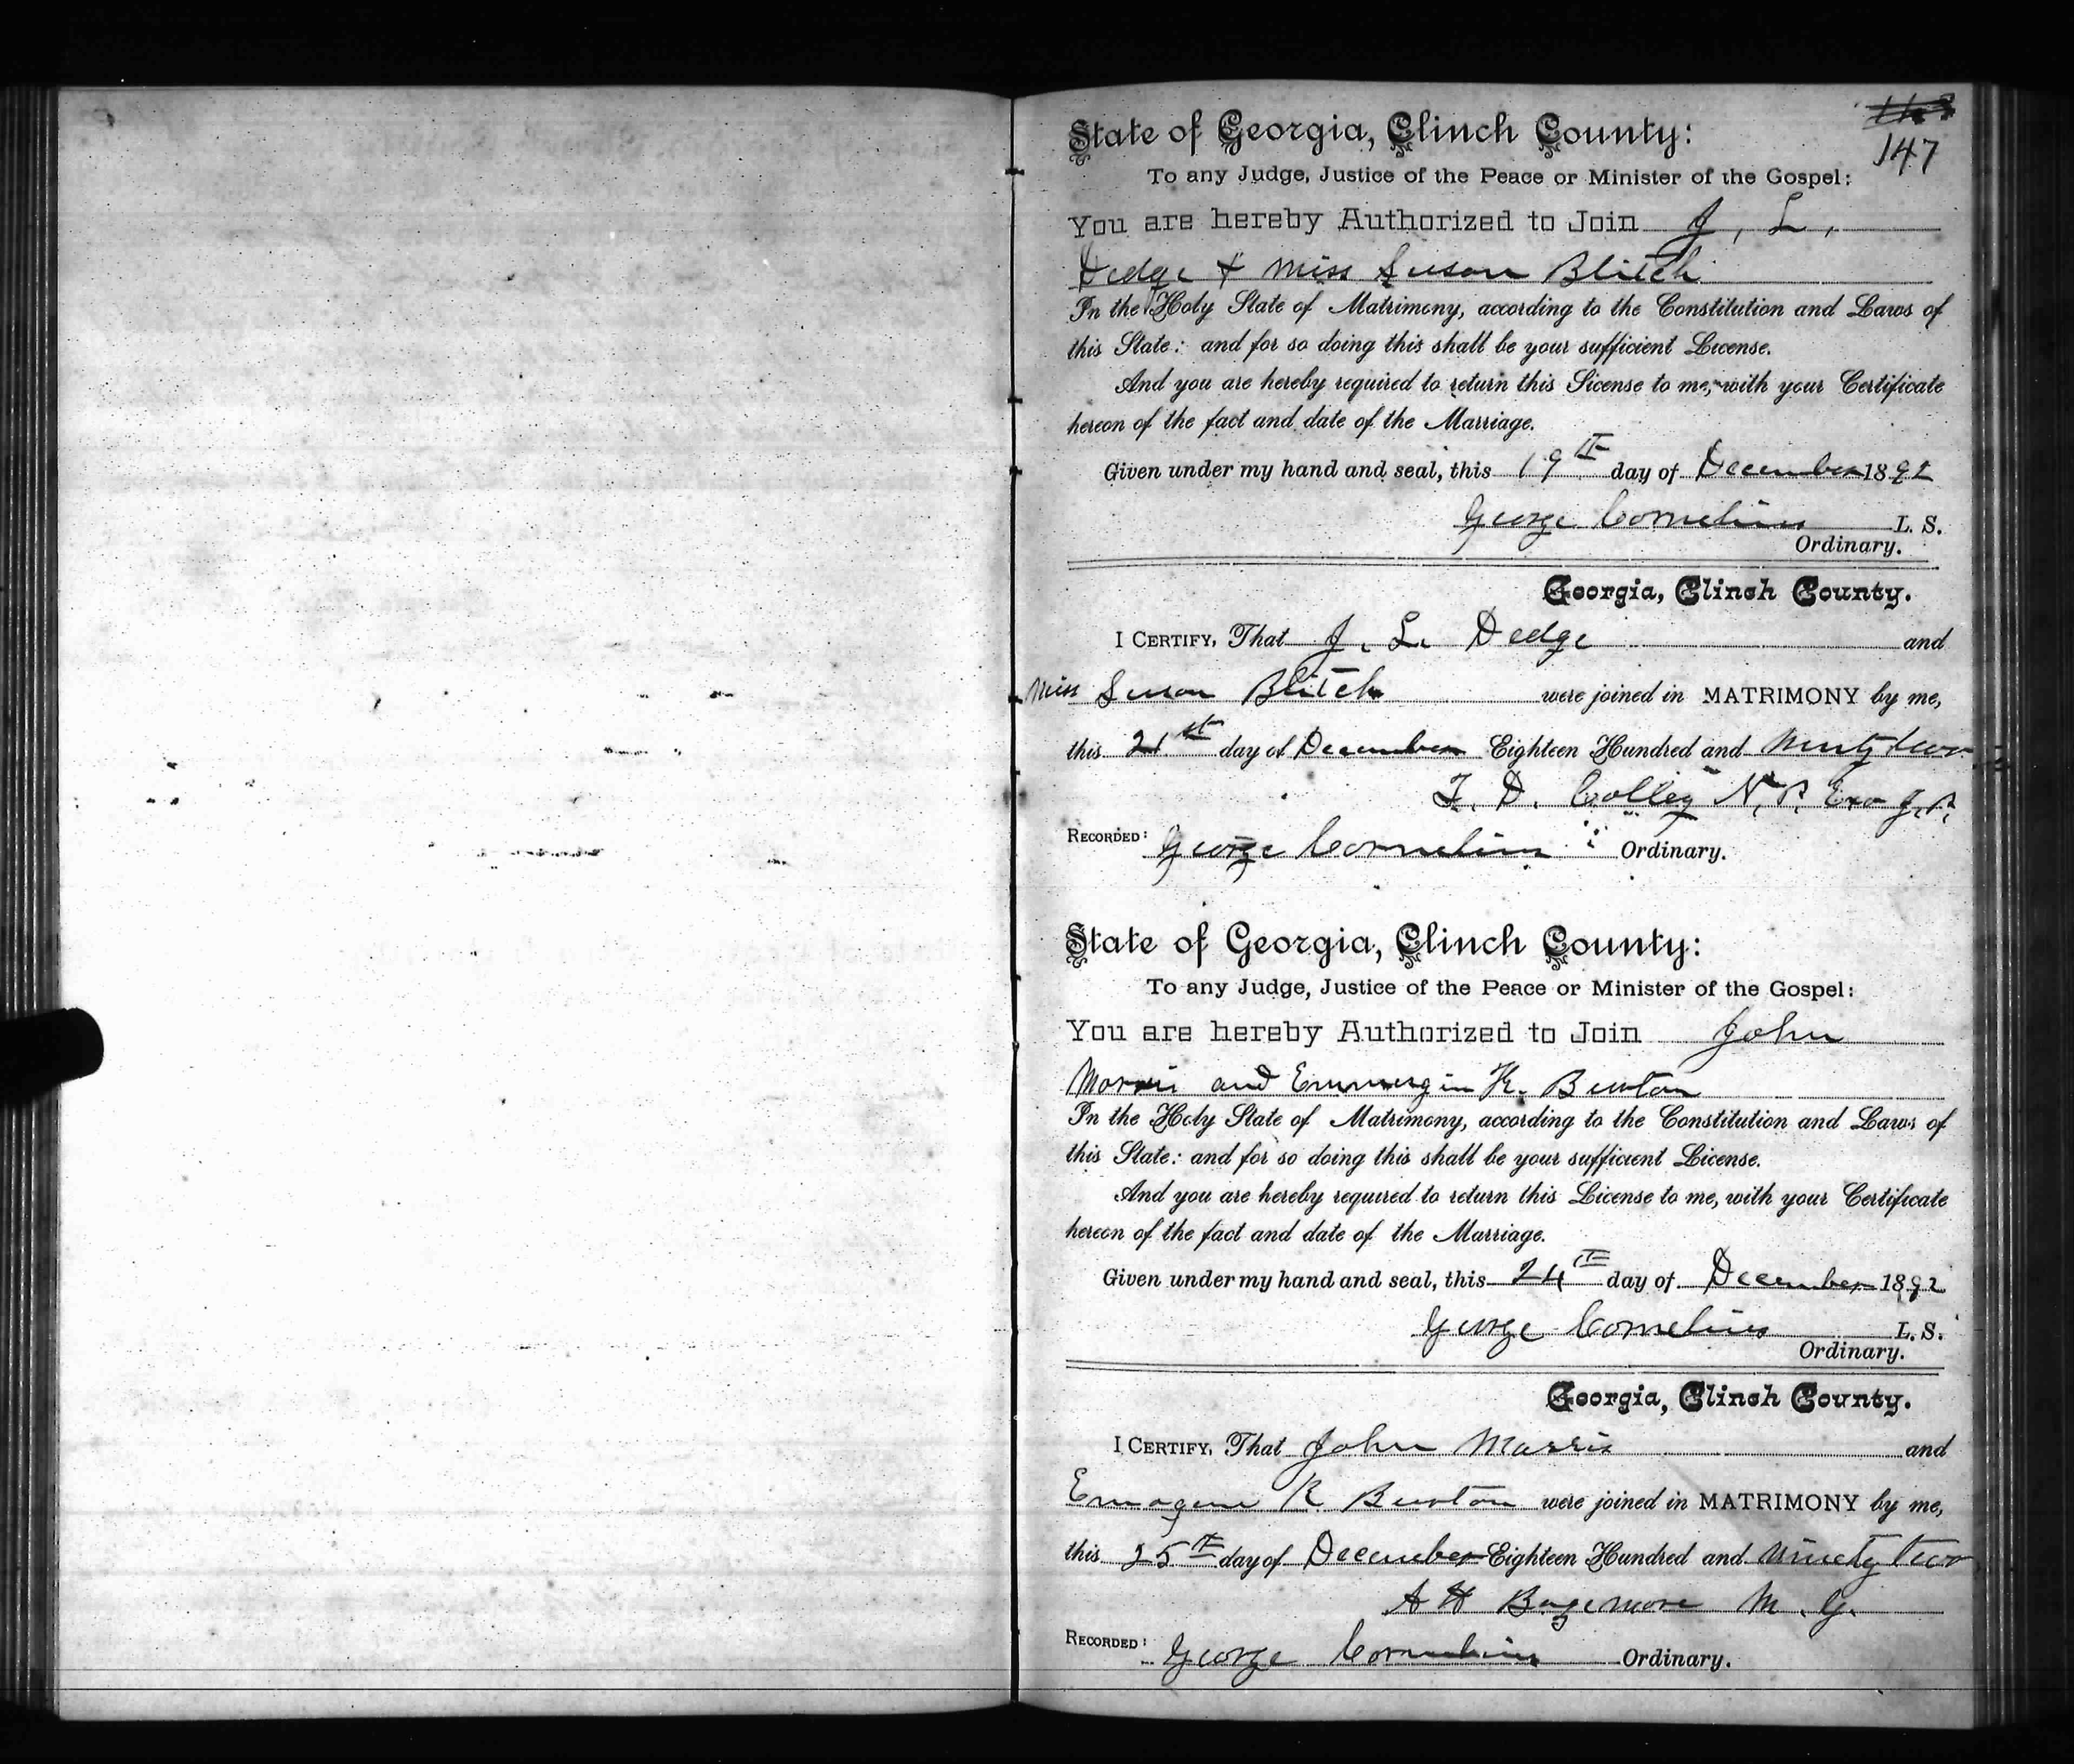 147
State of Georgia, Clinch County:
To any Judge, Justice of the Peace or Minister of the Gospel:
You are hereby Authorized to Join J, L,
Dedge & Miss Susan Blitch
In the Holy State of Matrimony, according to the Constitution and Laws of
this State: and for so doing this shall be your sufficient License.
And you are hereby required to return this License to me, with your Certificate
hereon of the fact and date of the Marriage.
Given under my hand and seal, this 19th day of December 1892
George Cornelius L. S.
Ordinary.
Georgia, Clinch County.
I CERTIFY, That J. L. Dedge and
Miss Susan Blitch were joined in MATRIMONY by me,
this 21st day of December Eighteen Hundred and Ninty two
T. D. Colley N. P. Exo J. P.
RECORDED: George Cornelius Ordinary.
State of Georgia, Clinch County:
To any Judge, Justice of the Peace or Minister of the Gospel:
You are hereby Authorized to Join John
Morris and K. Burton
In the Holy State of Matrimony, according to the Constitution and Laws of
this State: and for so doing this shall be your sufficient License.
And you are hereby required to return this License to me, with your Certificate
hereon of the fact and date of the Marriage.
Given under my hand and seal, this 24th day of December 1892
George Cornelius L. S.
Ordinary.
Georgia, Clinch County.
I CERTIFY, That John Morris and
Emogene K Burton were joined in MATRIMONY by me,
this 25th day of December Eighteen Hundred and Ninety two
A H Bazemore M. G.
RECORDED: George Cornelius Ordinary.